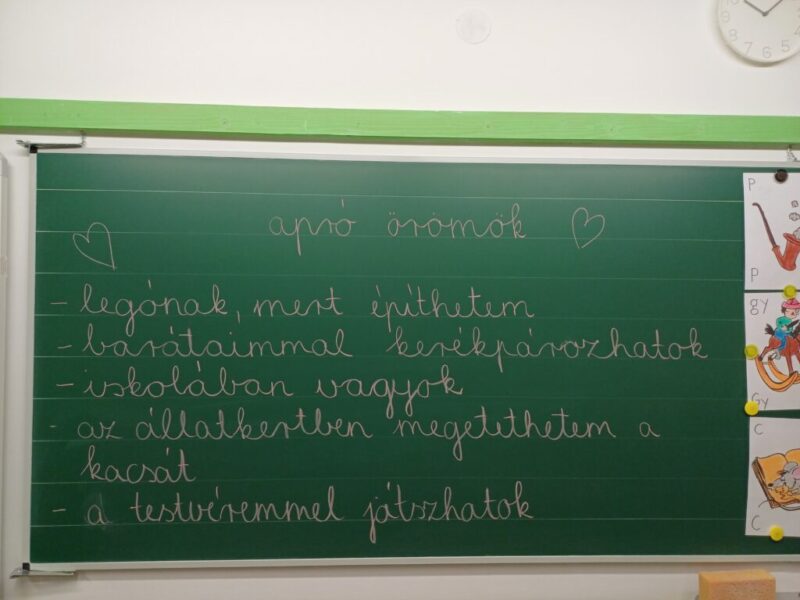 apró örömök
- legónak, mert építhetem
- barátaimmal kerékpározhatok
- iskolában vagyok
- az állatkertben megetethetem a
kacsát
- a testvéremmel játszhatok
P
P
gy
Gy
c
C
10
9
8
7
6
5
4